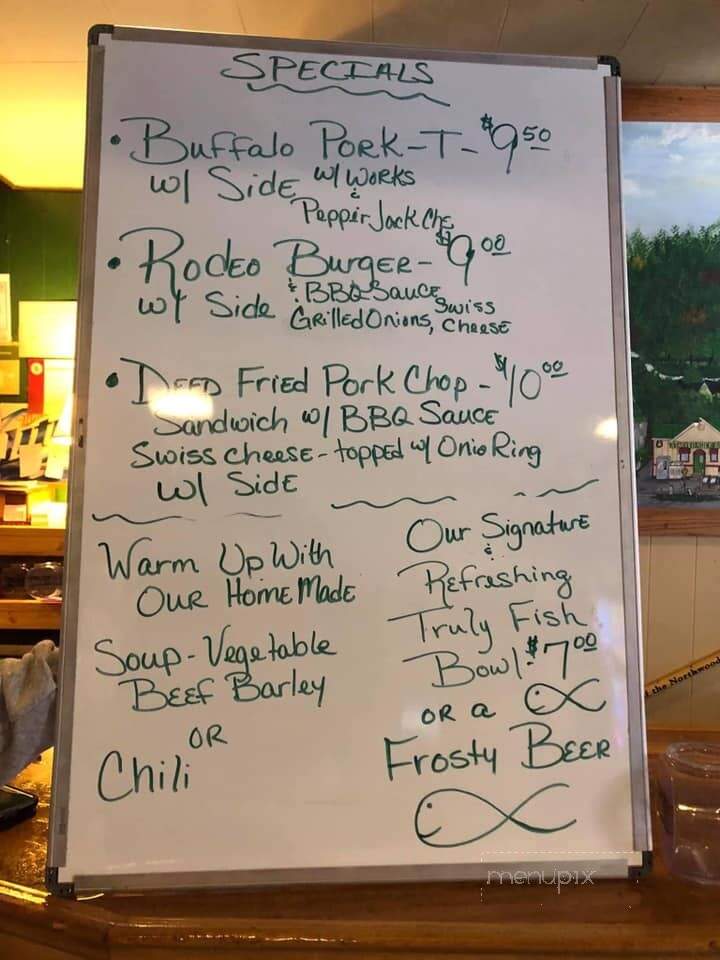 SPECIALS
• Buffalo Pork-T- $9.50
w/ Side w/ Works
& Pepper Jack Che
• Rodeo Burger- $9.00
w/ Side & BBQ Sauce, Swiss
Grilled Onions, Cheese
• Deep Fried Pork Chop - $10.00
Sandwich w/ BBQ Sauce
Swiss Cheese - topped w/ Onio Ring
w/ Side
Warm Up With
Our HomeMade
Soup - Vegetable
Beef Barley
OR
Chili
Our Signature
&
Refrashing
Truly Fish
Bowl. $7.00
OR a
Frosty Beer
the Northwood
menupix